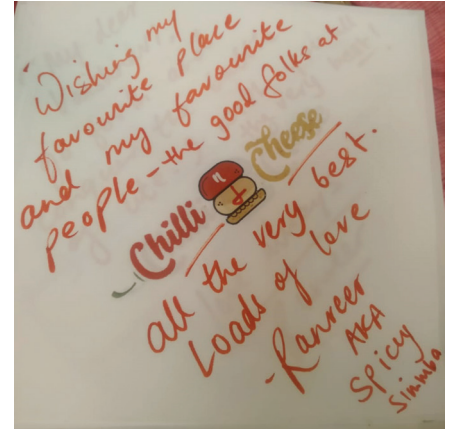 Wishing my
favourite place
and my favourite
people - the good folks at
Chilli Cheese
all the very best.
Loads of love
- Ranveer
AKA
Spicy
Simmba